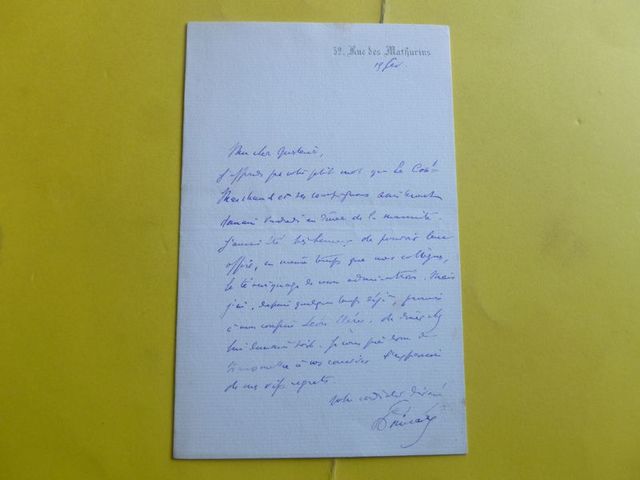 52, Rue des Mathurins
19 fév.
Mon cher Gustave,
J'apprends par votre petit mot que le Cdt
Marchand et ses compagnons
demain Vendredi en
J'aurais été très heureux de pouvoir leur
offrir, en même temps que nos collègues,
le témoignage de mon admiration. Mais
j'ai, depuis quelque temps déjà, promis
à mon confrère Léon de dîner chez
lui demain soir. Je vous prie donc de
transmettre à vos convives l'expression
de mes vifs regrets
Votre cordialement dévoué